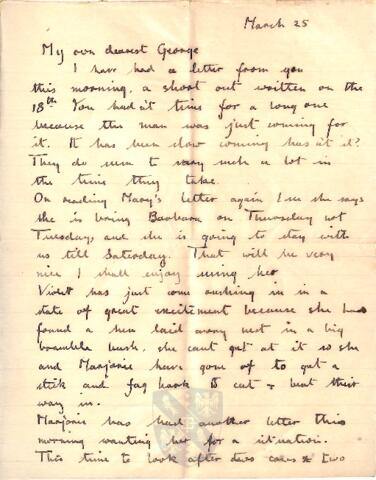 March 25
My own dearest George
I have had a letter from you
this morning, a short one written on the
18th You hadnt time for a long one
because the man was just coming for
it. It has been slow coming hasnt it?
They do seem to vary such a lot in
the time they take.
On reading Mary's letter again I see she says
she is bring Barbara on Thursday not
Tuesday, and she is going to stay with
us till Saturday. That will be very
nice I shall enjoy seeing her
Violet has just come rushing in in a
state of great excitement because she has
found a hen laid away nest in a big
bramble bush, she cant get at it so she
and Marjorie have gone off to get a
stick and fag hook to cut & beat their
way in.
Marjorie has had another letter this
morning wanting her for a situation.
This time to look after cows & two